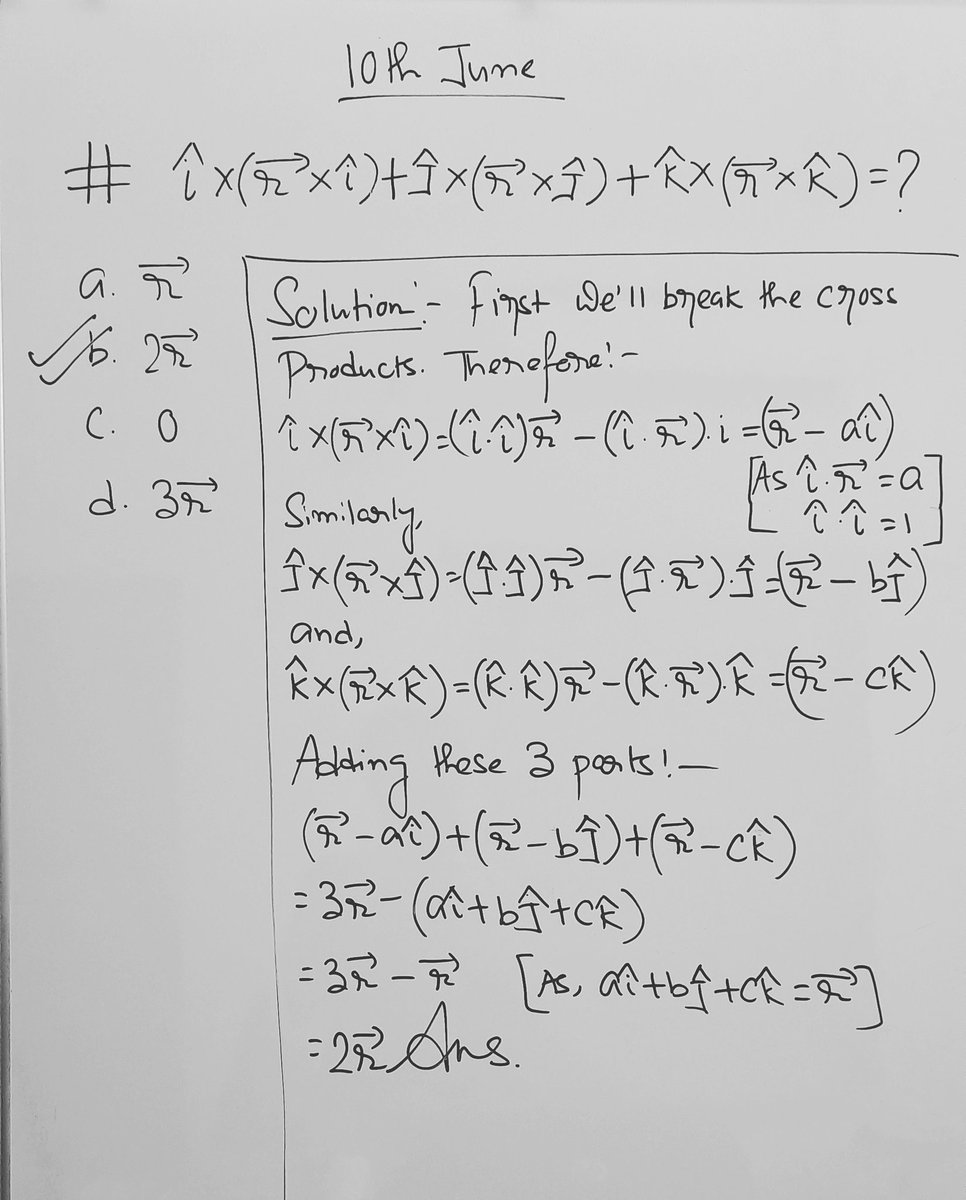 10th June
# î×(r⃗×î)+ĵ×(r⃗×ĵ)+k̂×(r⃗×k̂)=?
a. r⃗
b. 2r⃗
c. 0
d. 3r⃗
Solution:- First We'll break the cross
Products. Therefore:-
î×(r⃗×î)=(î.î)r⃗-(î.r⃗).i=(r⃗-aî)
[As î.r⃗=a
î.î=1]
Similarly,
ĵ×(r⃗×ĵ)=(ĵ.ĵ)r⃗-(ĵ.r⃗).ĵ=(r⃗-bĵ)
and,
k̂×(r⃗×k̂)=(k̂.k̂)r⃗-(k̂.r⃗).k̂=(r⃗-ck̂)
Adding these 3 parts:-
(r⃗-aî)+(r⃗-bĵ)+(r⃗-ck̂)
=3r⃗-(aî+bĵ+ck̂)
=3r⃗-r⃗ [As, aî+bĵ+ck̂=r⃗]
=2r⃗ Ans.